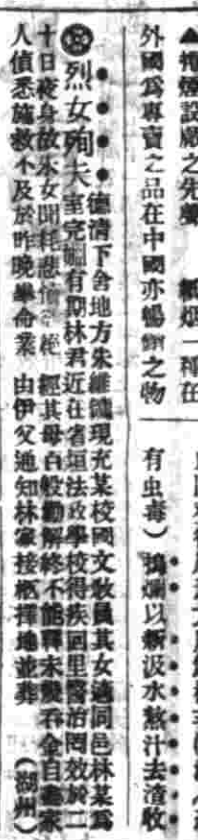 ▲捲煙設廠之先聲 紙烟一種在
外國爲專賣之品在中國亦暢銷之物
有虫毒）搗爛以新汲水熬汁去渣收
烈女殉夫
德清下舍地方朱維現充某校國文敎員其女適同邑林某爲
室完姻有期林君近在省垣法政學校得疾回里醫治罔效於二
十日夜身故朱女聞耗悲慟絕 經其母百般勸解終不能釋未幾吞金自盡家
人偵悉施救不及於昨晚畢命業 由伊父通知林家接柩擇地並葬 （湖州）